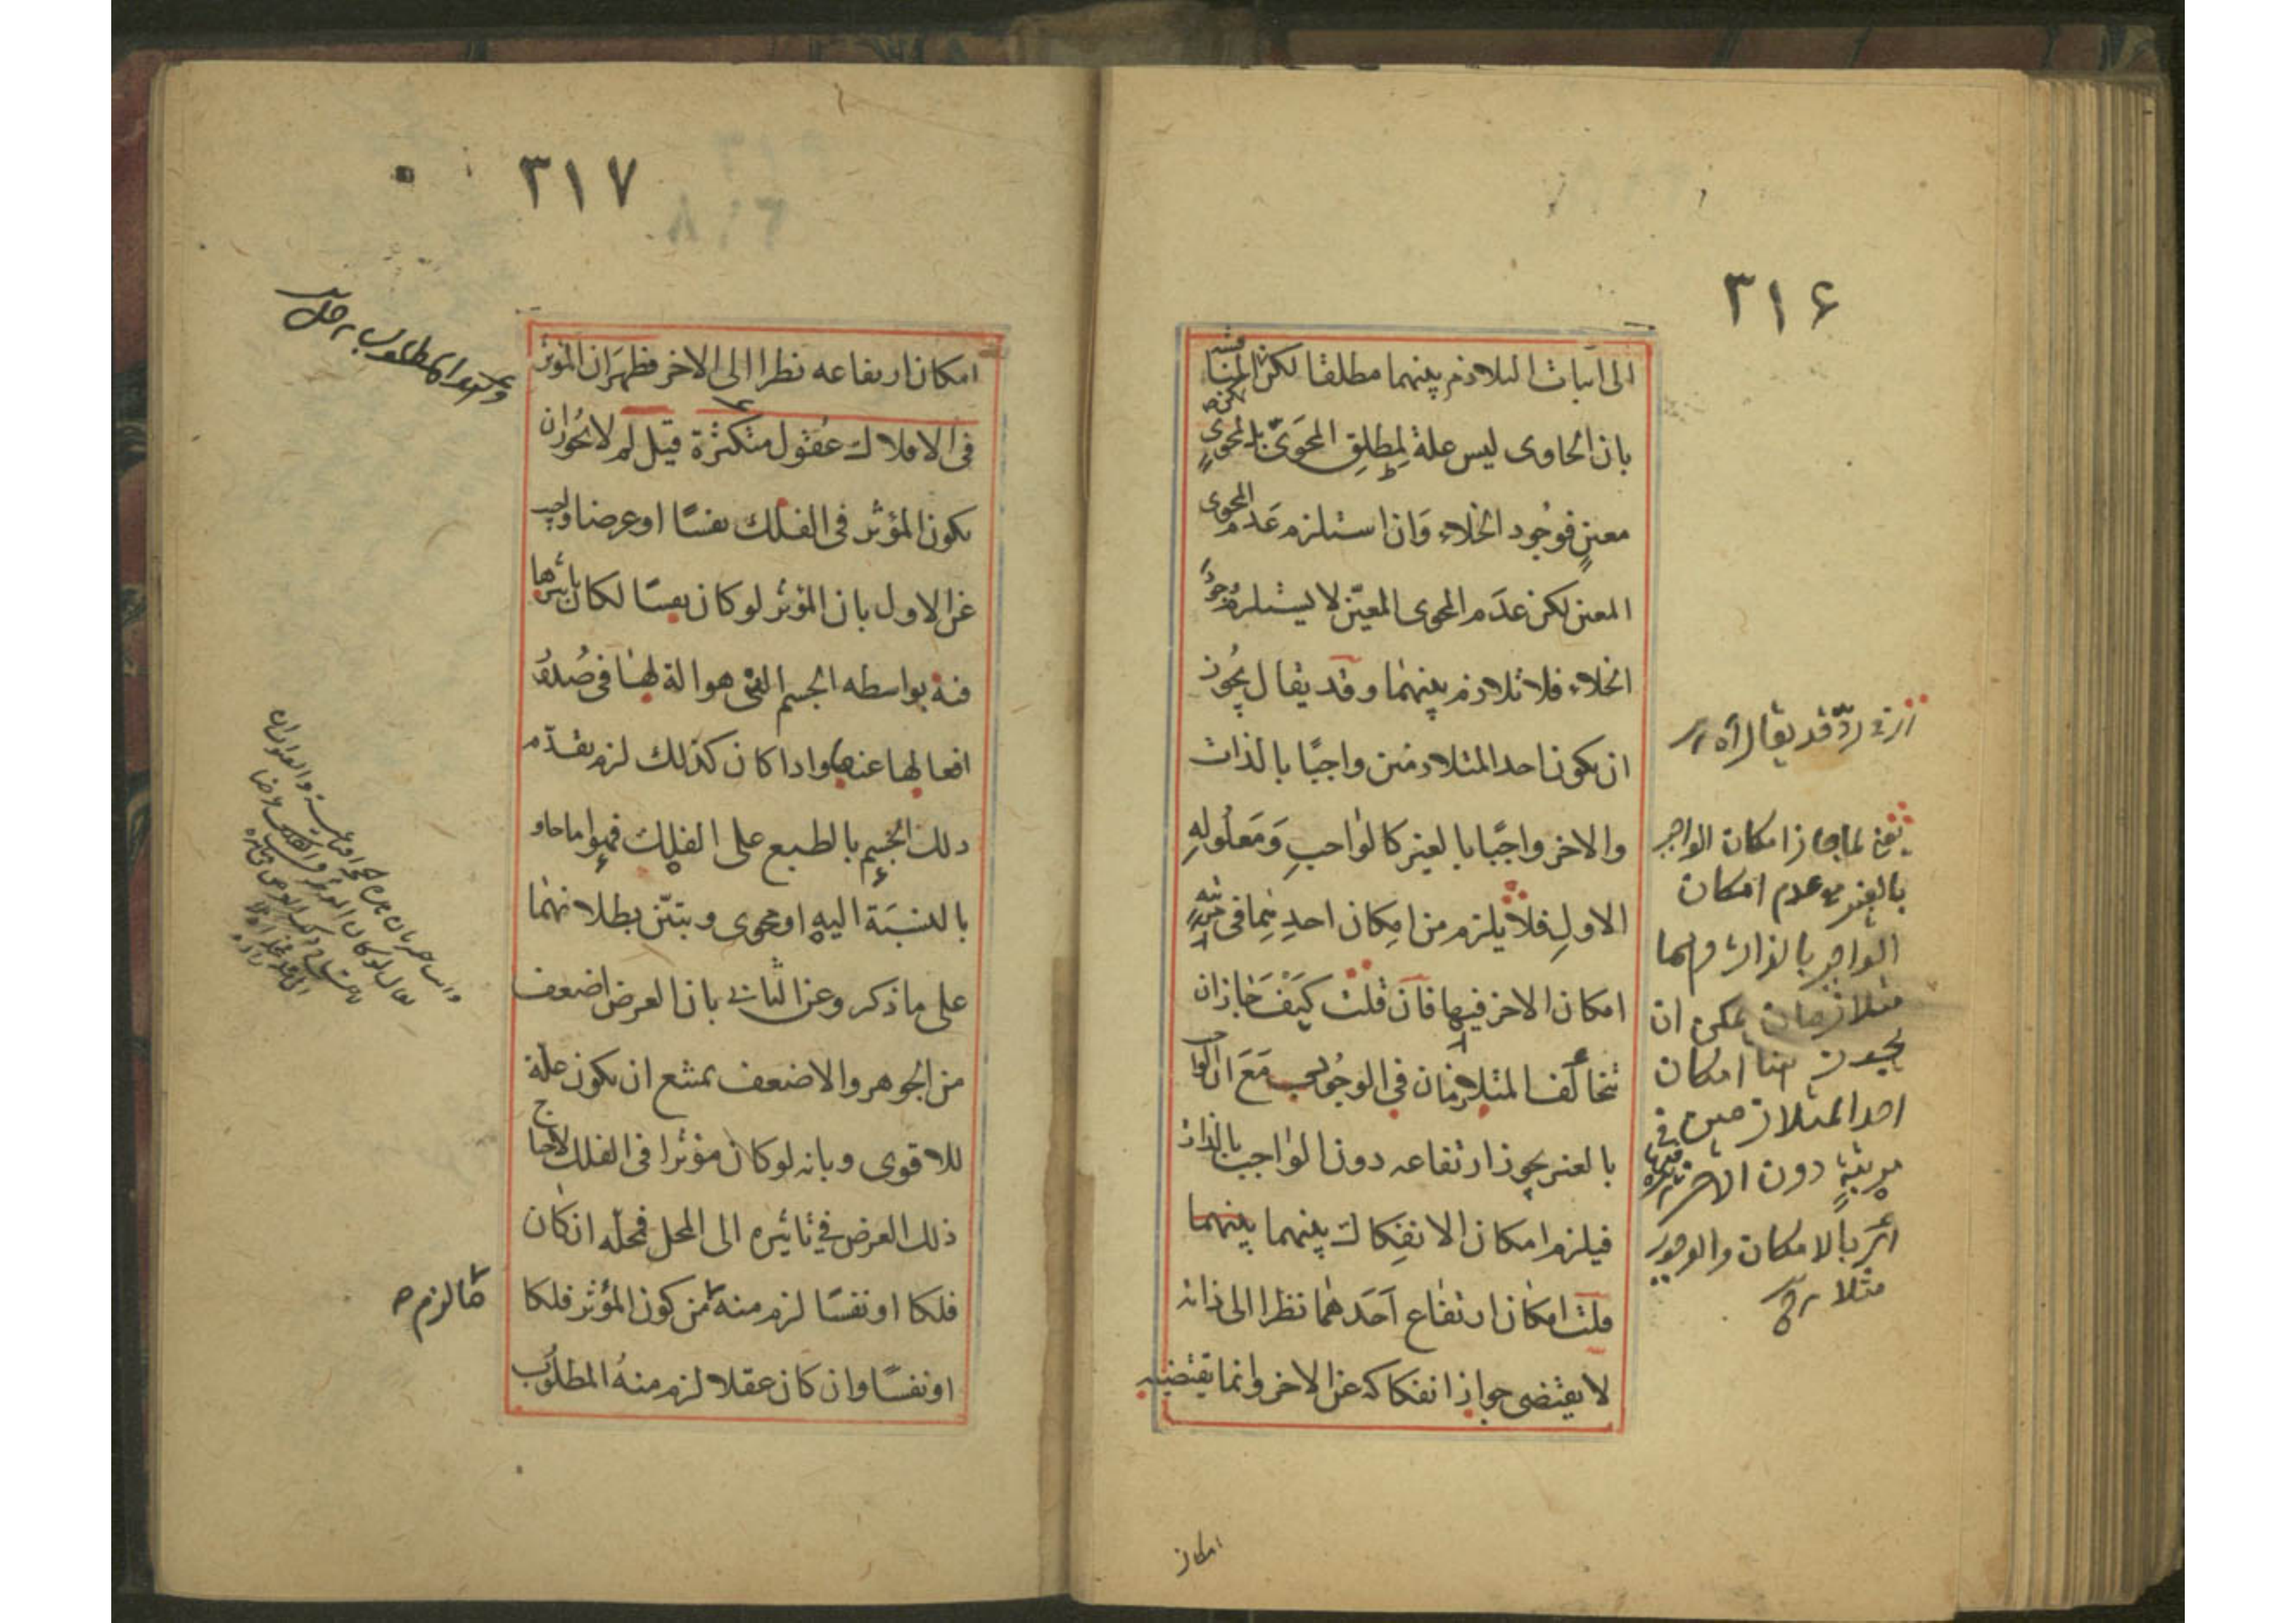 ٣١۶
الى اثبات التلازم بينهما مطلقا لكن المناقشة
بان الحاوى ليس علة لمطلق المحوى بل لمحوى
معين فوجود الخلاء وان استلزم عدم المحوى
المعين لكن عدم المحوى المعين لا يستلزم وجود
الخلاء فلا تلازم بينهما وقد يقال يجوز
ان يكون احد المتلازمين واجبًا بالذات
والاخر واجبًا بالغير كالواجب ومعلوله
الاول فلا يلزم من امكان احدهما فى مرتبة
امكان الاخر فيها فان قلت كيف جاز ان
تخالف المتلازمان فى الوجوب مع ان الواجب
بالغير يجوز ارتفاعه دون الواجب بالذات
فيلزم امكان الانفكاك بينهما بينهما
قلت امكان ارتفاع احدهما نظرا الى ذاته
لا يقتضى جواز انفكاكه عن الاخر وانما يقتضيه
رد قد يقال اه
يعنى لما جاز امكان الواجب
بالغير مع عدم امكان
الواجب بالذات وهما
متلازمان يمكن ان
هنا امكان
احد المتلازمين فى
مرتبة دون الاخر
بالامكان والوجوب
مثلا
امكان
٣١٧
امكان ارتفاعه نظرا الى الاخر فظهر ان المؤثر
فى الافلاك عقول متكثرة قيل لم لا يجوز ان
يكون المؤثر فى الفلك نفسًا او عرضا واجيب
عن الاول بان المؤثر لو كان نفسًا لكان تاثيرها
فيه بواسطه الجسم التى هو الة لها فى صدور
افعالها عنها واذا كان كذلك لزم تقدم
ذلك الجسم بالطبع على الفلك فهو اما حاو
بالنسبة اليه او محوى وتبين بطلانهما
على ما ذكر وعن الثانى بان العرض اضعف
من الجوهر والاضعف يمتنع ان يكون علة
للاقوى وبانه لو كان مؤثرا فى الفلك لاحتاج
ذلك العرض فى تاثيره الى المحل فمحله ان كان
فلكا او نفسًا لزم منه ما لزم من كون المؤثر فلكا
او نفسًا وان كان عقلا لزم منه المطلوب